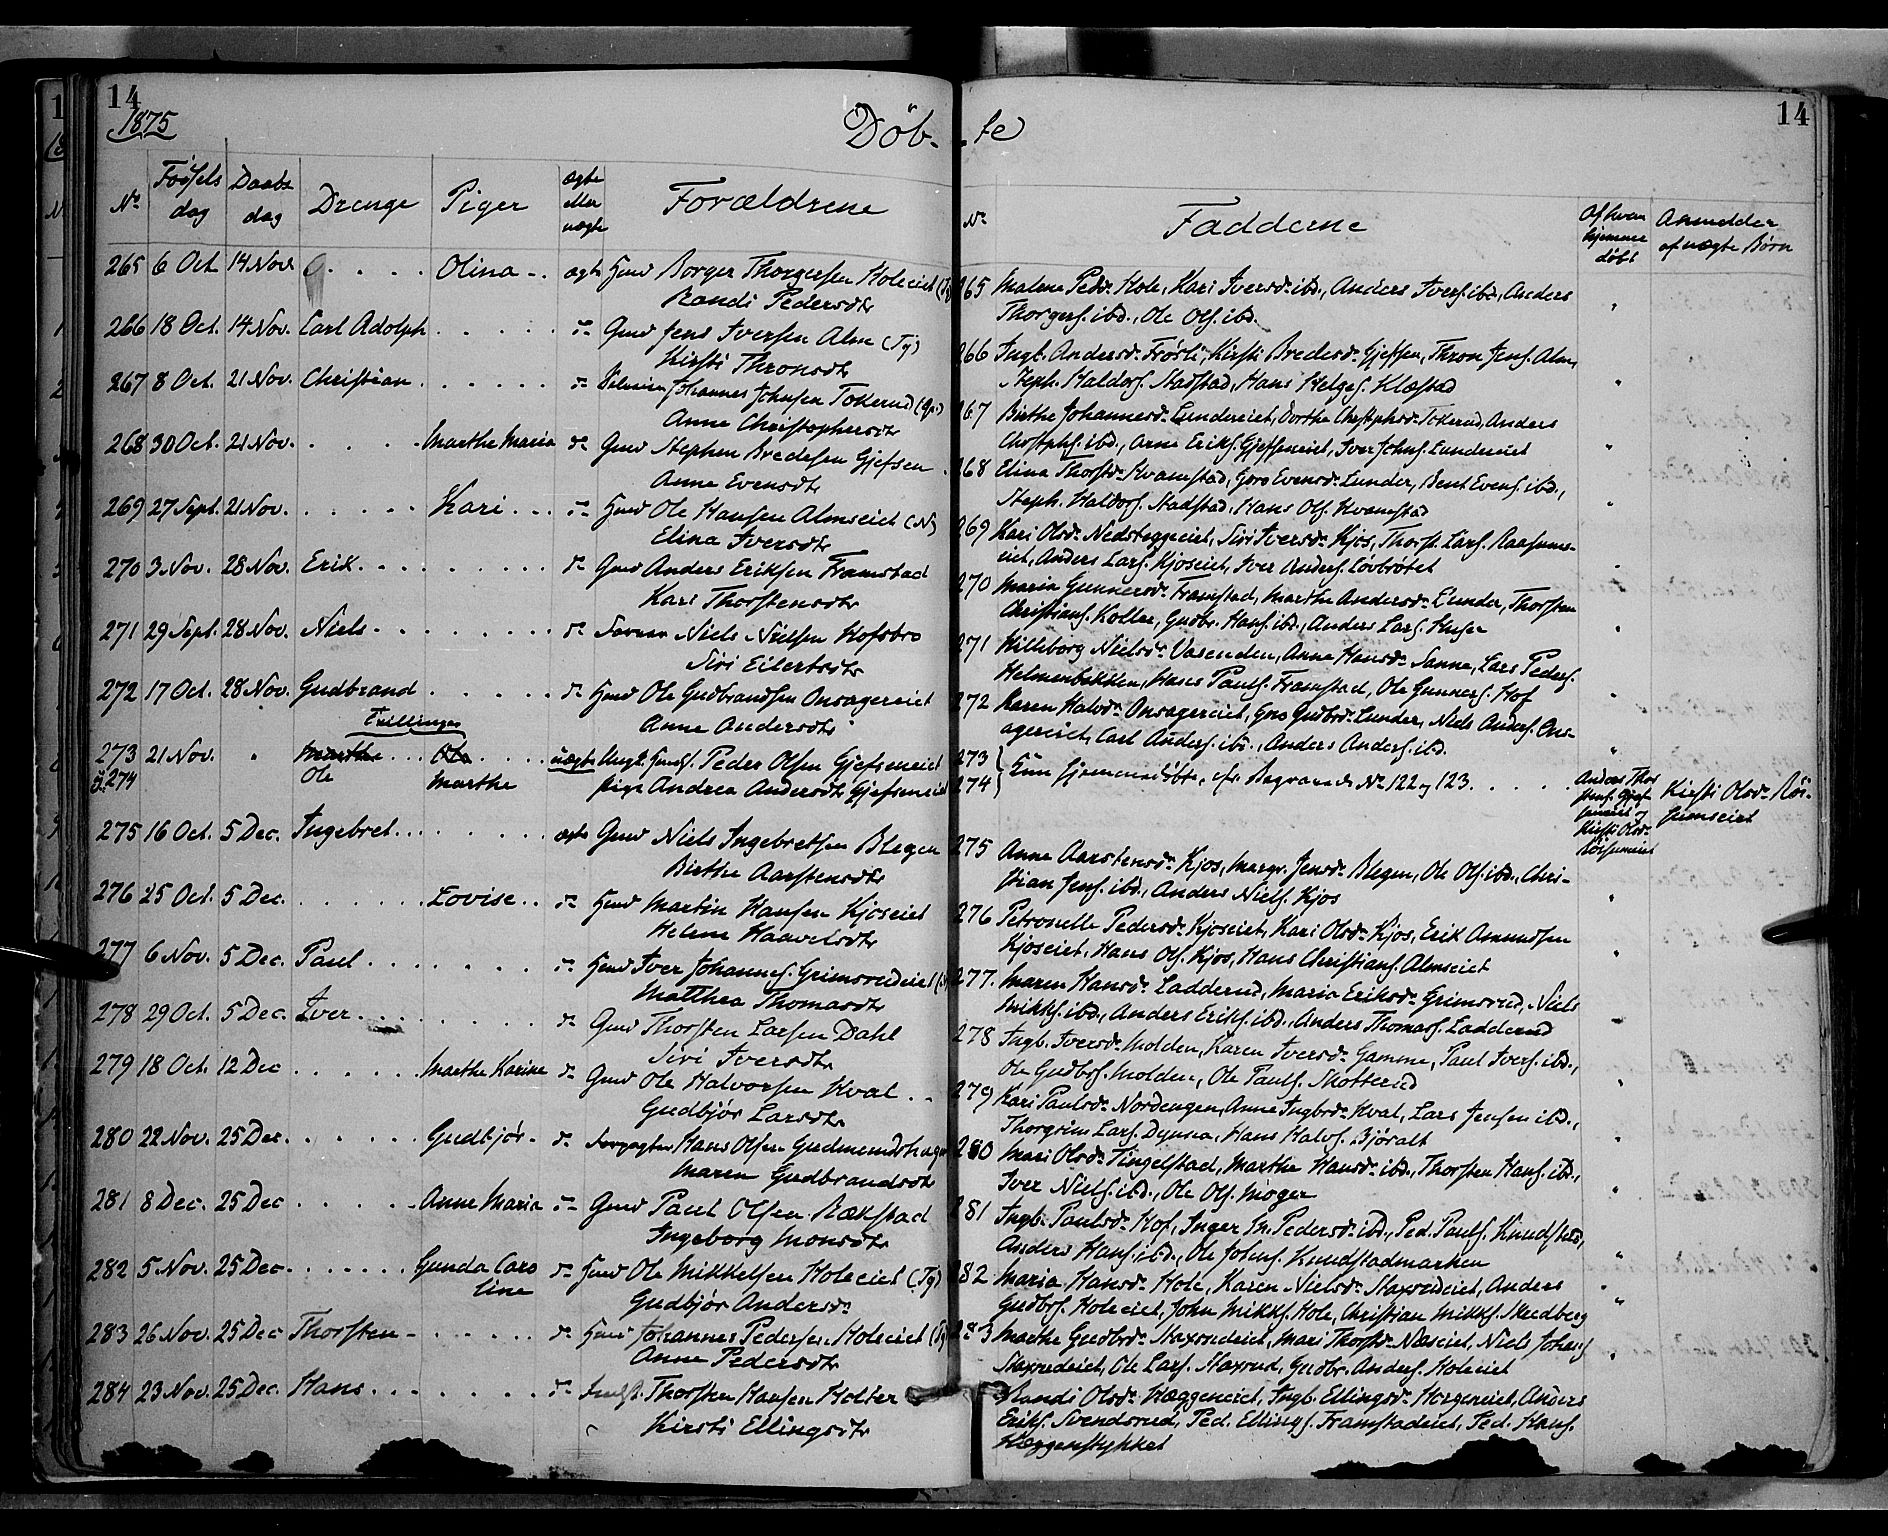 14
1875
Døb-
No
Fødsels dag
Daabs dag
Drenge
Piger
ægte eller uægte
Forældrene
265 6 Oct 14 Nov. Olina ægte Huusm Borger Thorgersen Holeeiet (Tg)
Randi Pedersdtr
266 18 Oct. 14 Nov. Carl Adolph do Gmd Jens Iversen Alm (Tg)
Kirsti Thronsdtr
267 8 Oct. 21 Nov. Christian do Johannes Johnsen Tokerud (Gr.)
Anne Christophersdtr
268 30 Oct. 21 Nov. Marthe Maria do Gmd Stephen Bredesen Gjefsen
Anne Evensdtr
269 27 Sept. 21 Nov. Kari do Hmd Ole Hansen Almseiet (N)
Elina Iversdtr
270 3 Nov. 28 Nov. Erik do Gmd Anders Eriksen Framstad
Kari Thorstensdtr
271 29 Sept. 28 Nov. Niels do Niels Nielsen Hofsbro
Siri Eilertsdtr
272 17 Oct. 28 Nov. Gudbrand do Hmd Ole Gudbrandsen Onsagereiet
Anne Andersdtr
Tvillinger
273 21 Nov. " Marthe Ole uægte Ungk. Peder Olsen Gjefseneiet
& 274 Ole Marthe Pige Andrea Andersdtr Gjefseneiet
275 16 Oct. 5 Dec. Ingebret ægte Gmd Niels Ingebretsen Blegen
Birthe Aarstensdtr
276 25 Oct. 5 Dec. Lovise do Hmd Martin Hansen Kjoseiet
Helene Haavelsdtr
277 6 Nov. 5 Dec. Paul do Hmd Iver Johannes. Grimsrudeiet
Matthea Thomasdtr
278 29 Oct. 5 Dec. Iver do Gmd Thorsten Larsen Dahl
Siri Iversdtr
279 18 Oct. 12 Dec Marthe Karine do Gmd Ole Halvorsen Hval
Gudbjør Larsdtr
280 22 Nov. 25 Dec. Gudbjør do Forpagter Hans Olsen Gudmundshagen
Maren Gudbrandsdtr
281 8 Dec. 25 Dec Anne Maria do Gmd Paul Olsen Rækstad
Ingeborg Monsdtr
282 5 Nov. 25 Dec. Gunda Caro- do Hmd Ole Mikkelsen Holeeiet (Tg)
line Gudbjør Andersdr
283 26 Nov. 25 Dec Thorsten do Hmd Johannes Pedersen Holeeiet (Tg)
Anne Pedersdtr
284 23 Nov. 25 Dec. Hans do Thorsten Hansen Holter
Kirsti Ellingsdtr
14
te
No
Fadderne
Af hvem hjemme døbt
Anmelder af uægte Børn
265 Malene Pedsdr Hole, Kari Iversdr ibd., Anders Ivers. ibd., Anders
Thorgers. ibd., Ole Ols. ibd.
266 Ingb. Andersdr Frøsli, Kirsti Bredesdr Gjefsen, Thron Jens. Alm,
Steph. Haldors. Stadstad, Hans Helges. Klæstad
267 Birthe Johannesdr Lundereiet, Dorthe Christophsdr Tokerud, Anders
Christophs. ibd., Arne Eriks. Gjefseneiet, Iver Johns. Lundereiet
268 Elina Thorstsdr Kvamstad, Goro Evensdr Lunder, Bent Evens. ibd.,
Steph. Haldors. Stadstad, Hans Ols. Kvamstad
269 Kari Olsdr Nedsteggeeiet, Siri Iversdr Kjos, Thorst. Lars. Raasums-
eiet, Anders Lars. Kjoseiet, Iver Anders. Løvbrøtet
270 Maria Gunnersdr Framstad, Marthe Andersdr Lunder, Thorsten
Christians. Koller, Gudbr. Hans. ibd., Anders Lars. Huser
271 Killeborg Nielsdr Vasenden, Anne Hansdr Sanne, Lars Peders.
Helmenbakken, Hans Pauls. Framstad, Ole Gunners. Hof
272 Karen Halvsdr Onsagereiet, Goro Gudbrsdr Lunder, Niels Anders. Ons-
agereiet, Carl Anders. ibd., Anders Anders. ibd.
273
274 Kun hjemmedøbte, cfr. Begravede No 122 og 123.
Anders Thorstens. Gjefseneiet og Kirsti Olsdr Røisumeiet
Kirsti Olsdr Røisumeiet
275 Anne Aarstensdr Kjos, Margr. Jensdr Blegen, Ole Ols. ibd., Chri-
stian Jens. ibd., Anders Niels. Kjos
276 Petronelle Pedersdr Kjoseiet, Kari Olsdr Kjos, Erik Amundsen
Kjoseiet, Hans Ols. Kjos, Hans Christians. Almseiet
277. Maren Hansdr Ladderud, Maria Eriksdr Grimsrud, Niels
Mikks. ibd., Anders Eriks. ibd., Anders Thomass. Ladderud
278 Ingb. Iversdr Molden, Karen Iversdr Gamme, Paul Ivers. ibd.,
Ole Gudbrs. Molden, Ole Pauls. Skotterud
279 Kari Paulsdr Nordengen, Anne Ingbrsdr Hval, Lars Jensen ibd.,
Thorgrim Lars. Dynna, Hans Halvs. Bjøralt
280 Mari Olsdr Tingelstad, Marthe Hansdr ibd., Thorsten Hans. ibd.,
Iver Niels. ibd., Ole Ols. Moger
281 Ingb. Paulsdr Hof, Inger M. Pedersdr ibd., Ped. Pauls. Knudstad,
Anders Hans. ibd., Ole Johns. Knudstadmarken
282 Maria Hansdr Hole, Karen Nielsdr Staxrudeiet, Anders
Gudbrs. Holeeiet, John Mikks. Hole, Christian Mikks. Skredberg
283 Marthe Gudbrsdr Staxrudeiet, Mari Thorstsdr Næseiet, Niels Johans.
Staxrudeiet, Ole Lars. Staxrud, Gudbr. Anders. Holeeiet
Randi Olsdr Hæggeneiet, Ingb. Ellingsdr Horgeneiet, Anders
Eriks. Svendsrud, Ped. Ellings. Framstadeiet, Ped. Hans.
Hæggenstykket